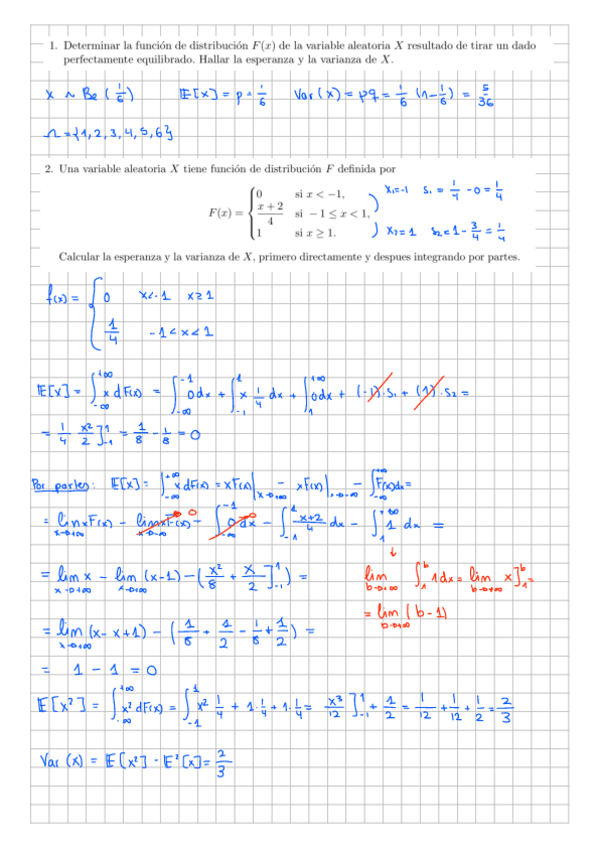 1. Determinar la función de distribución F(x) de la variable aleatoria X resultado de tirar un dado
perfectamente equilibrado. Hallar la esperanza y la varianza de X.
x ~ Be (1/6) E[x] = p = 1/6 Var(x) = pq = 1/6 (1-1/6) = 5/36
Ω = {1,2,3,4,5,6}
2. Una variable aleatoria X tiene función de distribución F definida por
F(x) = { 0 si x < −1,
(x+2)/4 si −1 ≤ x < 1,
1 si x ≥ 1.
x₁=-1 s₁ = 1/4 - 0 = 1/4
x₂=1 s₂ = 1 - 3/4 = 1/4
Calcular la esperanza y la varianza de X, primero directamente y despues integrando por partes.
f(x) = { 0 x<-1 x≥1
1/4 -1<x<1
E[x] = ∫_{-∞}^{+∞} x dF(x) = ∫_{-∞}^{-1} 0dx + ∫_{-1}^{1} x 1/4 dx + ∫_{1}^{+∞} 0dx + (-1)·s₁ + (1)·s₂ =
= 1/4 x²/2 ]_{-1}^{1} = 1/8 - 1/8 = 0
Por partes: E[x] = ∫_{-∞}^{+∞} x dF(x) = xF(x)|_{x→+∞} - xF(x)|_{x→-∞} - ∫_{-∞}^{+∞} F(x)dx =
= lim_{x→+∞} xF(x) - lim_{x→-∞} xF(x) 0 - ∫_{-∞}^{-1} 0dx 0 - ∫_{-1}^{1} (x+2)/4 dx - ∫_{1}^{+∞} 1 dx =
= lim_{x→+∞} x - lim_{x→+∞} (x-1) - (x²/8 + x/2 ]_{-1}^{1}) =
lim_{b→+∞} ∫_{1}^{b} 1dx = lim_{b→+∞} x]_{1}^{b} =
= lim_{b→+∞} (b-1)
= lim_{x→+∞} (x-x+1) - (1/8 + 1/2 - 1/8 + 1/2) =
= 1 - 1 = 0
E[x²] = ∫_{-∞}^{+∞} x² dF(x) = ∫_{-1}^{1} x² 1/4 + 1·1/4 + 1·1/4 = x³/12 ]_{-1}^{1} + 1/2 = 1/12 + 1/12 + 1/2 = 2/3
Var (x) = E[x²] - E²[x] = 2/3